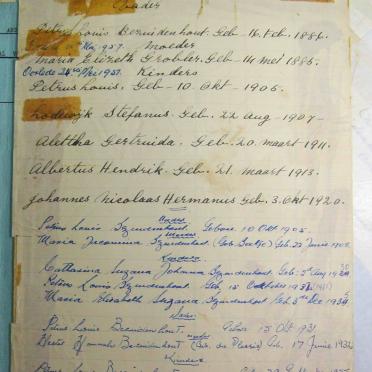 Vader
Petrus Louis Bezuidenhout. Geb - 16. Feb. 1886.
1957. Moeder
Maria Elizabeth Grobler. Geb - 14 mei 1886.
Oorlede 1957. Kinders
Petrus Louis. Geb - 10. Okt - 1905.
Lodewyk Stefanus. Geb. 22 Aug - 1907 -
Alettha Gertruida. Geb. 20. maart - 1911.
Albertus Hendrik. Geb. 21. maart - 1913.
Johannes Nicolaas Hermanus Geb. 3. Okt 1920.
Vader
Petrus Louis Bezuidenhout. Gebore 10 Okt 1905.
Moeder
Maria Jacomina Bezuidenhout (Geb. ) Geb. 22 Junie
Kinders
Catharina Susana Johanna Bezuidenhout Geb: 5 Aug
Petrus Louis Bezuidenhout. Geb. 15 Oktober 1931
Maria Elizabeth Susana Bezuidenhout Geb 5 Des
Vader
Petrus Louis Bezuidenhout. Gebore 15 Okt 1931
Moeder
Hannah Bezuidenhout (Geb. du Plessis) Geb. 17 Junie 1932
Kinders
Petrus Louis